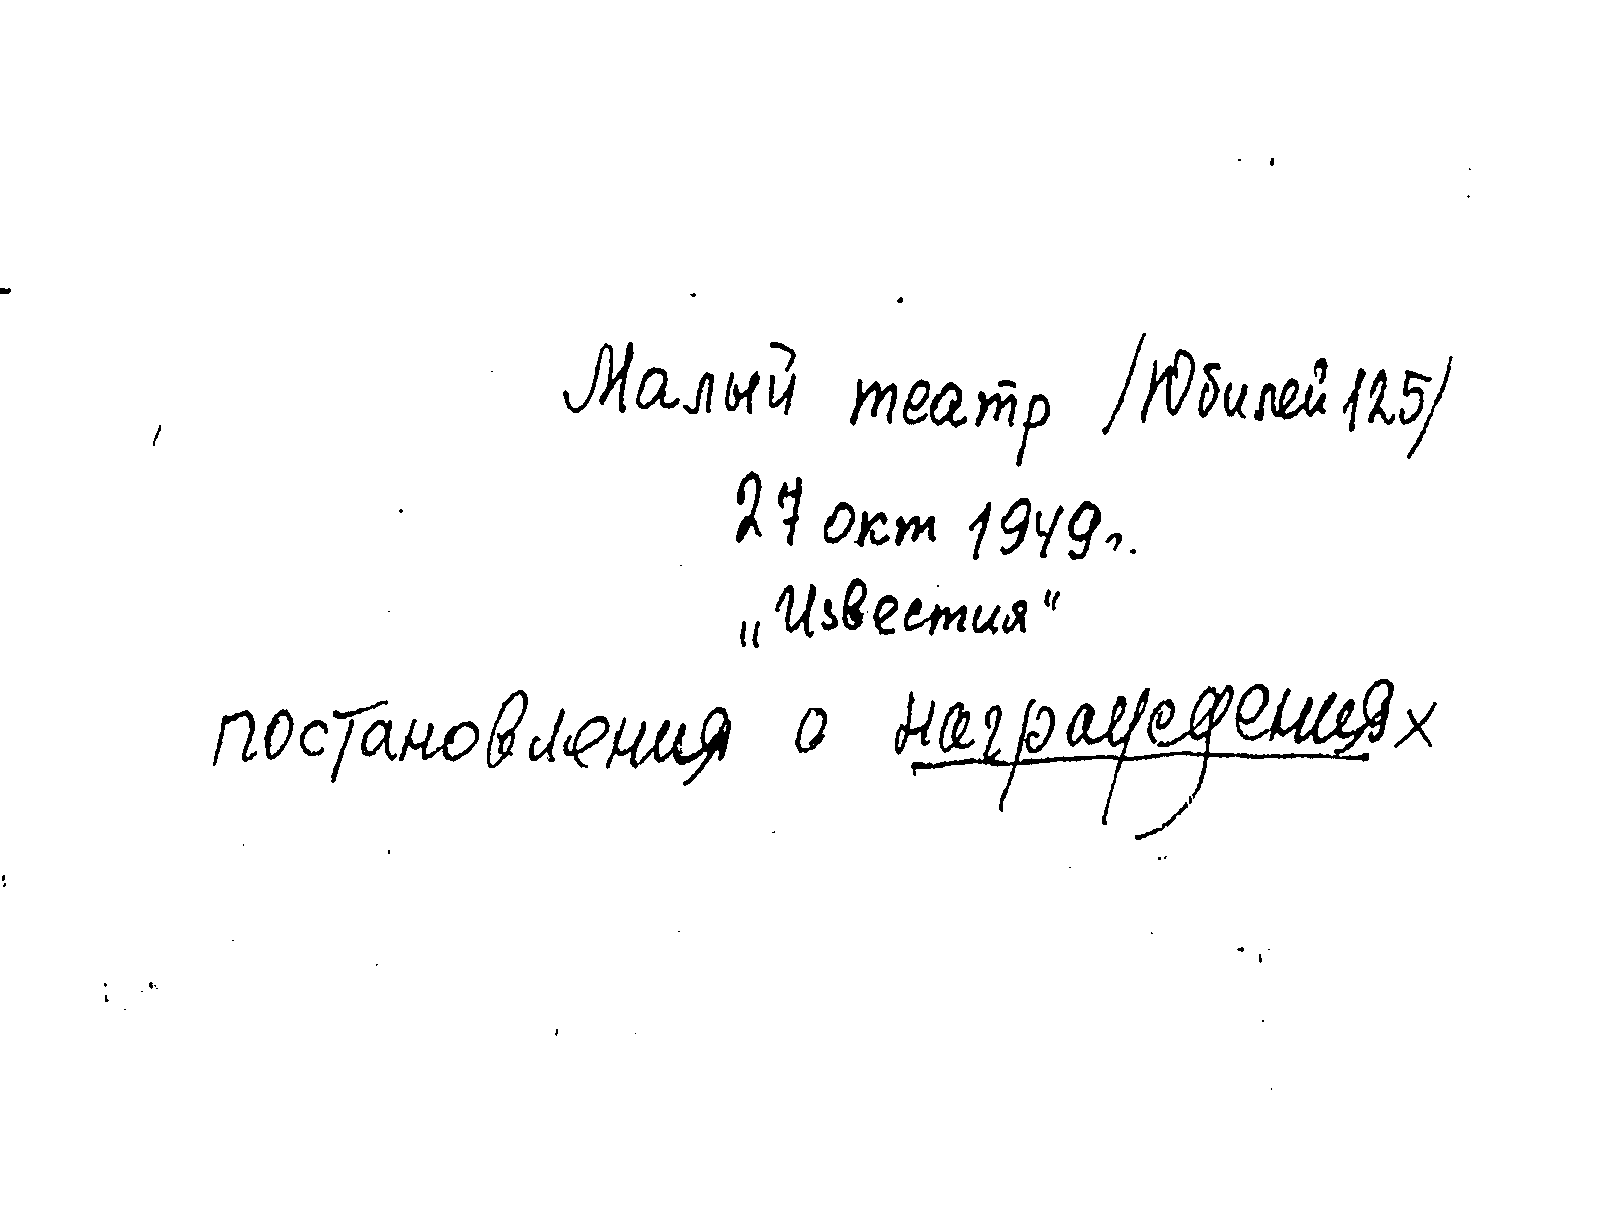 Малый театр /Юбилей 125/
27 окт 1949г.
„Известия“
постановления о награждениях